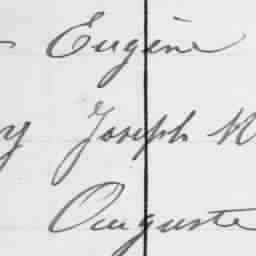 Eugène
y Joseph
Auguste